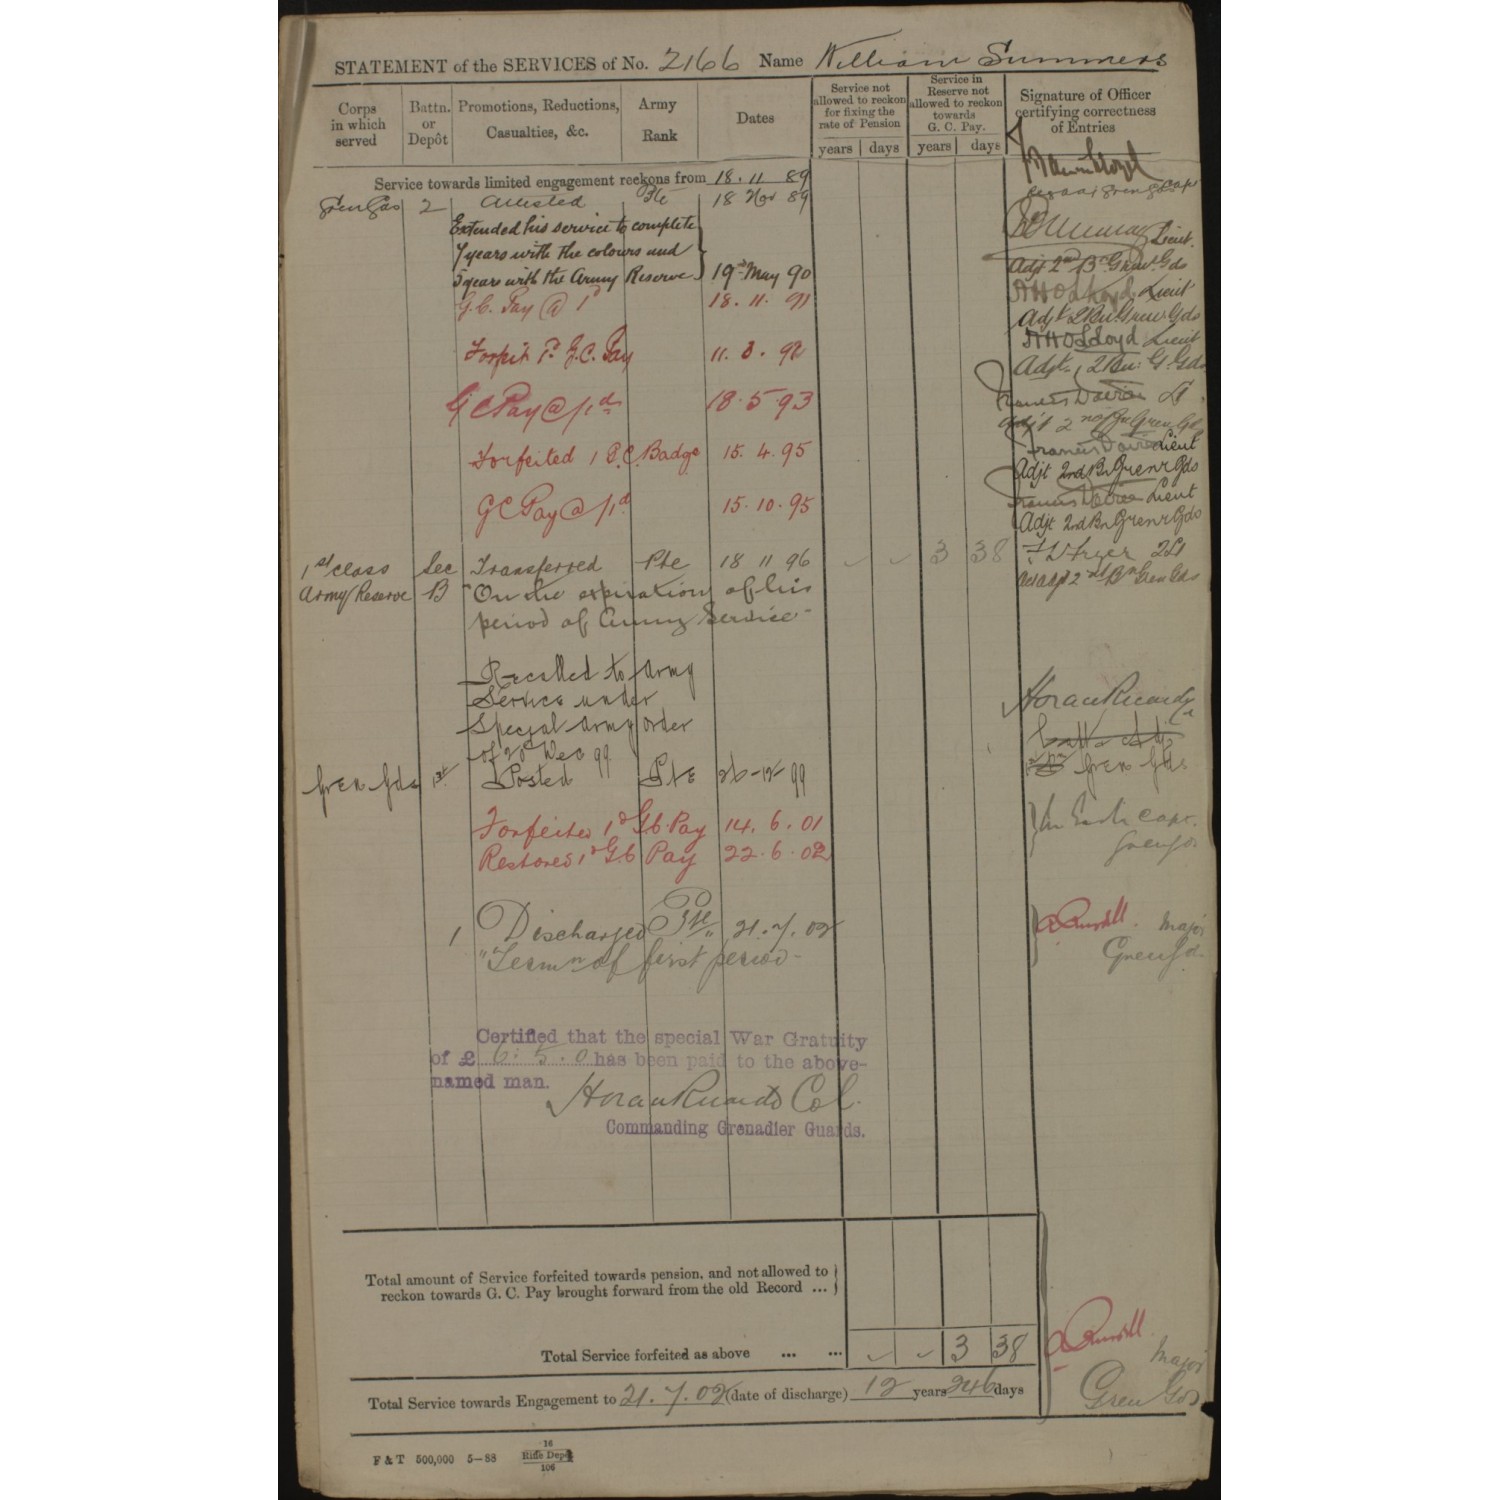 STATEMENT of the SERVICES of No. 2166 Name William Summers
Corps in which served
Battn. or Depôt
Promotions, Reductions, Casualties, &c.
Army Rank
Dates
Service not allowed to reckon for fixing the rate of Pension
years days
Service in Reserve not allowed to reckon towards G. C. Pay.
years days
Signature of Officer certifying correctness of Entries
Service towards limited engagement reckons from 18.11 89
Gren Gds 2 Attested Pte 18 Nov 89
Extended his service to complete
7 years with the colours and
5 years with the Army Reserve 19th May 90
Lieut.
Adjt 2nd Bn Gren Gds
G.C. Pay @ 1d 18.11.91
AHO Lloyd Lieut
Adjt 2 Bn Gren Gds
Forfeit 1d G.C. Pay 11. 8. 92
AHO Lloyd Lieut
Adjt 2 Bn G. Gds
G C Pay @ 1d 18.5.93
Francis Davies Lt
Adjt 2nd Bn Gren Gds
Forfeited 1 G.C. Badge 15.4.95
Francis Davies Lieut
Adjt 2nd Bn Grenr Gds
G C Pay @ 1d 15.10.95
Francis Davies Lieut
Adjt 2nd Bn Grenr Gds
1st Class Army Reserve Sec B Transferred Pte 18 11 96 3 38
"On the expiration of his
period of Army Service"
2Lt
2nd Bn Gren Gds
Recalled to Army
Service under
Special Army order
of 20th Dec 99
Horace Ricardo
Gren Gds 1st Posted Pte 26-12-99
Gren Gds
Forfeited 1d G.C. Pay 14.6.01
Capt.
Restored 1d G.C Pay 22.6.02
Gren Gds
1 Discharged Pte 21.7.02
"Termn of first period"
Major
Gren Gds
Certified that the special War Gratuity
of £ 6.5.0 has been paid to the above-
named man.
Horace Ricardo Col.
Commanding Grenadier Guards.
Total amount of Service forfeited towards pension, and not allowed to
reckon towards G. C. Pay brought forward from the old Record ...
Total Service forfeited as above ... ... 3 38
Major
Gren Gds
Total Service towards Engagement to 21.7.02 (date of discharge) 12 years 246 days
F & T 500,000 5—88
16
Rifle Depôt
106